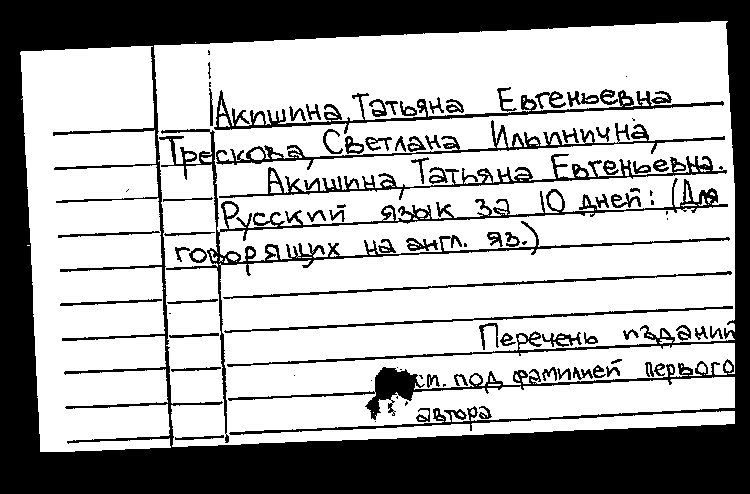 Акишина, Татьяна Евгеньевна
Трескова, Светлана Ильинична,
Акишина, Татьяна Евгеньевна.
Русский язык за 10 дней: (Для
говорящих на англ. яз.)
Перечень изданий
см. под фамилией первого
автора